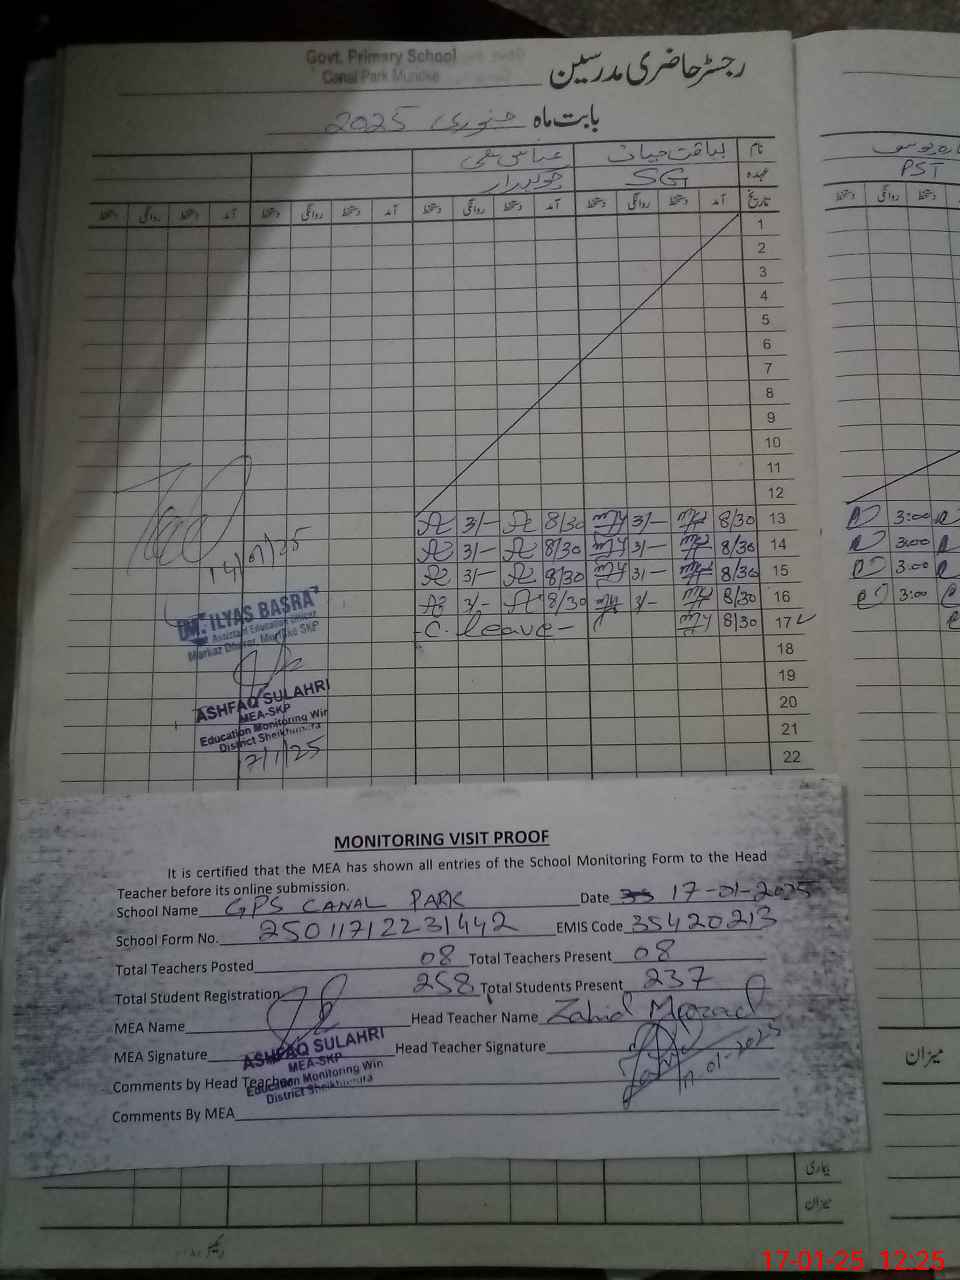 Govt. Primary School
Canal Park Muridke
رجسٹر حاضری مدرسین
بابت ماہ جنوری 2025
نام لیاقت حیات
عہدہ SG چوکیدار
PST
تاریخ آمد دستخط روانگی دستخط آمد دستخط روانگی دستخط آمد دستخط روانگی دستخط آمد دستخط روانگی دستخط
1
2
3
4
5
6
7
8
9
10
11
12
13 8/30 3/- 8/30 3/- 3:00
14 8/30 3/- 8/30 3/- 3:00
15 8/30 3/- 8/30 3/- 3:00
16 8/30 3/- 8/30 3/- 3:00
17 8/30 - C. leave -
18
19
20
21
22
14/01/25
M. ILYAS BASRA
Assistant Education Officer
Muridke SKP
ASHFAQ SULAHRI
MEA-SKP
Education Monitoring Win
District Sheikhupura
17/1/25
MONITORING VISIT PROOF
It is certified that the MEA has shown all entries of the School Monitoring Form to the Head
Teacher before its online submission.
School Name GPS CANAL PARK Date 17-01-2025
School Form No. 25011712231442 EMIS Code 35420213
Total Teachers Posted 08 Total Teachers Present 08
Total Student Registration 258 Total Students Present 237
MEA Name Head Teacher Name Zahid
MEA Signature Head Teacher Signature
17.01.2025
ASHFAQ SULAHRI
MEA-SKP
Education Monitoring Win
District Sheikhupura
Comments by Head Teacher
Comments By MEA
میزان
بیماری
میزان
17-01-25 12:25